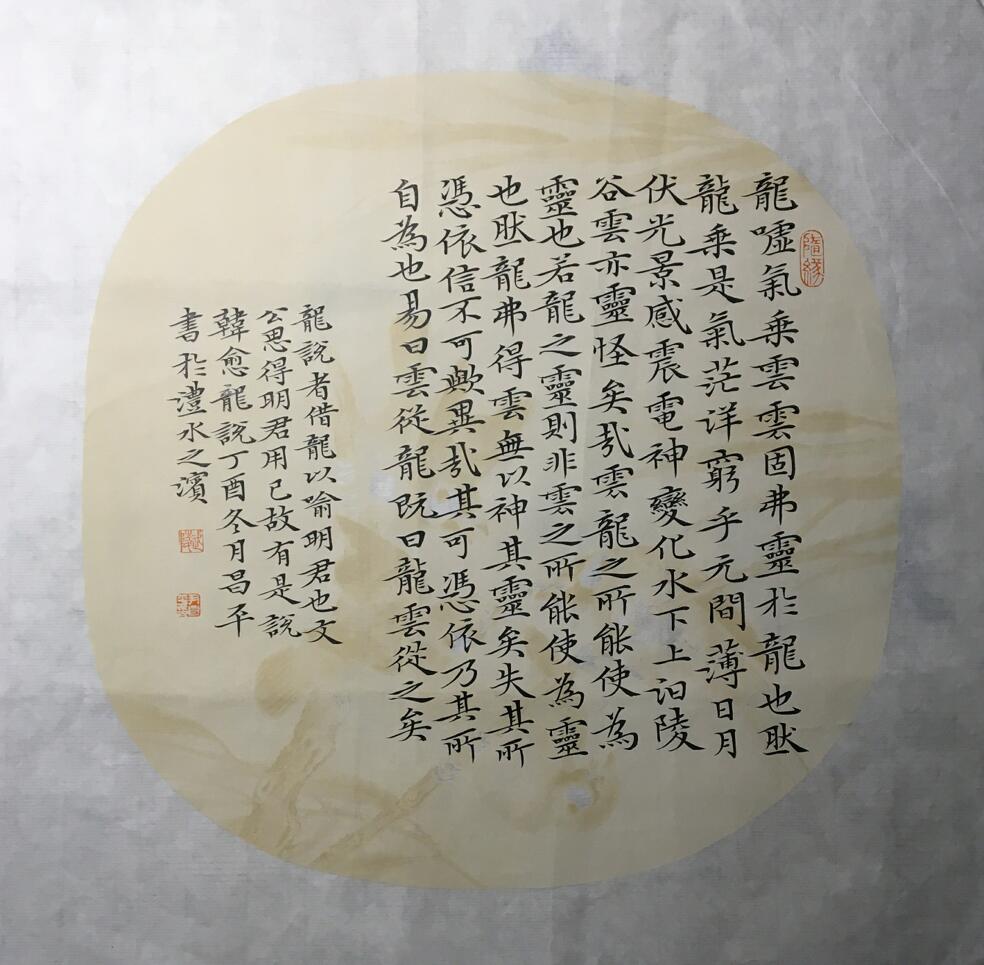 龍噓氣乗雲雲固弗靈於龍也肰
龍乗是氣茫洋窮乎元間薄日月
伏光景感震電神變化水下上汩陵
谷雲亦靈怪矣㢤雲龍之所能使為
靈也若龍之靈則非雲之所能使為靈
也肰龍弗得雲無以神其靈矣失其所
憑依信不可歟異㢤其可憑依乃其所
自為也易曰雲從龍既曰龍雲從之矣
龍說者借龍以喻明君也文
公思得明君用已故有是說
韓愈龍説丁酉冬月昌平
書於澧水之濱
隨緣